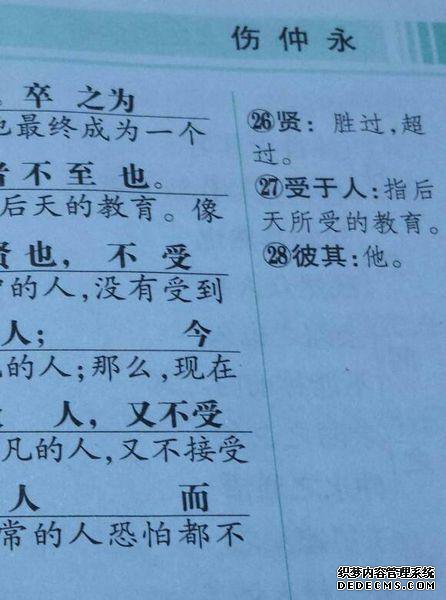 伤仲永
卒 之为
也最终成为一个
者不至 也。
后天的教育。像
贤也，不 受
的人，没有受到
人； 今
的人；那么，现在
人，又不受
凡的人，又不接受
人 而
常的人恐怕都不
㉖贤：胜过，超
过。
㉗受于人：指后
天所受的教育。
㉘彼其：他。
织梦内容管理系统
DEDECMS.COM